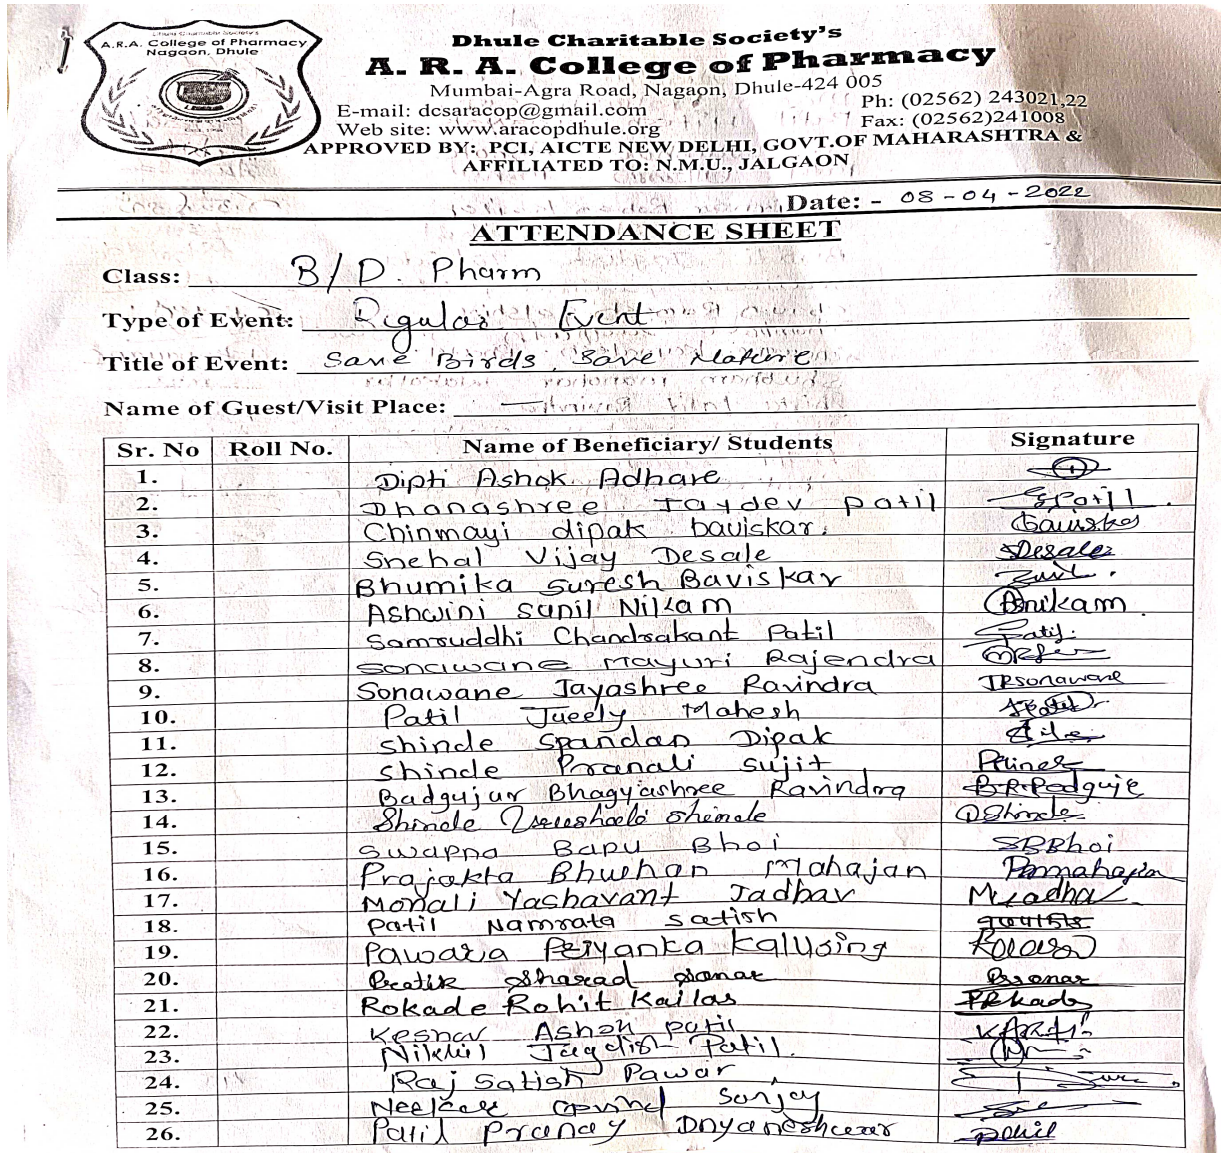 A.R.A. College of Pharmacy
Nagaon, Dhule
Dhule Charitable Society's
A. R. A. College of Pharmacy
Mumbai-Agra Road, Nagaon, Dhule-424 005
E-mail: dcsaracop@gmail.com Ph: (02562) 243021,22
Web site: www.aracopdhule.org Fax: (02562)241008
APPROVED BY: PCI, AICTE NEW DELHI, GOVT.OF MAHARASHTRA &
AFFILIATED TO: N.M.U., JALGAON
Date: - 08-04-2022
ATTENDANCE SHEET
Class: B/D. Pharm
Type of Event: Regular Event
Title of Event: Save Birds, Save Nature
Name of Guest/Visit Place: —
Sr. No Roll No. Name of Beneficiary/ Students Signature
1. Dipti Ashok Adhare
2. Dhanashree Jaydev patil
3. Chinmayi dipak baviskar. Baviskar
4. Snehal Vijay Desale Desale
5. Bhumika Suresh Baviskar
6. Ashwini sunil Nikam Anikam
7. Samruddhi Chandrakant Patil Patil
8. Sonawane Mayuri Rajendra
9. Sonawane Jayashree Ravindra JRsonawane
10. Patil Jueely Mahesh
11. shinde Spandan Dipak
12. shinde Pranali Sujit
13. Badgujar Bhagyashree Ravindra B.R.Badgujar
14. Shinde shinde Shinde
15. Swapna Bapu Bhoi SBBhoi
16. Prajakta Bhushan Mahajan Pmmahajan
17. Monali Yashavant Jadhav
18. Patil Namrata Satish
19. Pawara Priyanka Kalusing
20. Pratik Sharad Sonar
21. Rokade Rohit Kailas
22. Keshav Ashok patil
23. Nikhil Jagdish Patil.
24. Raj Satish Pawar
25. Sanjay
26. Patil Pranay Dnyaneshwar Patil